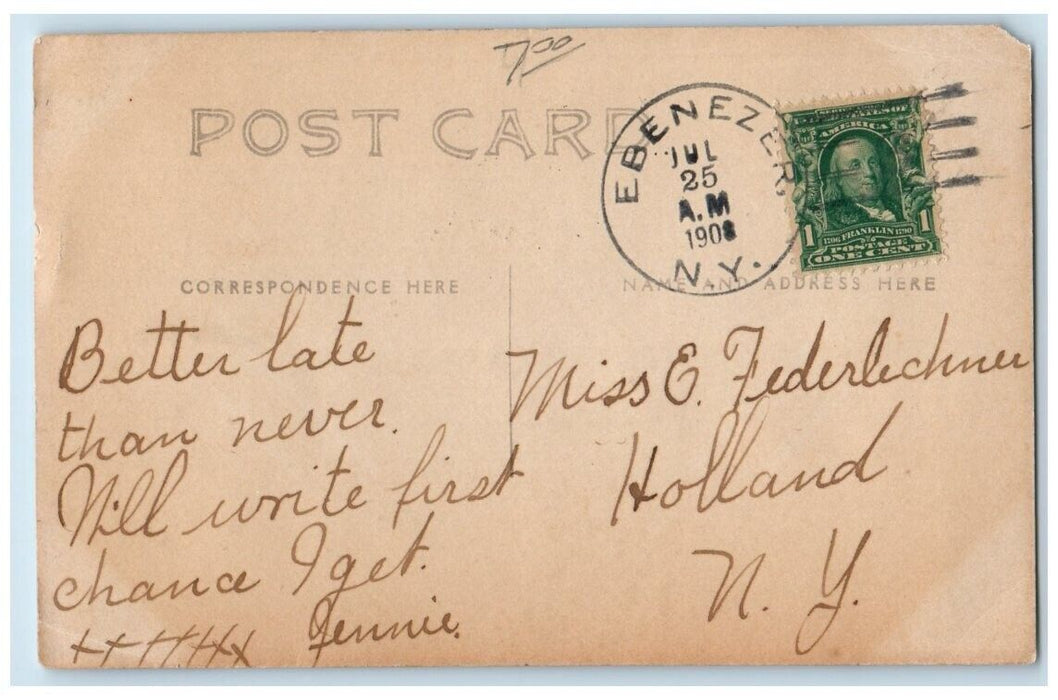 7.00
POST CARD
EBENEZER,
JUL
25
A.M
1908
N.Y.
AMERICA
1 1
1706 FRANKLIN 1790
POSTAGE
ONE CENT
CORRESPONDENCE HERE
NAME AND ADDRESS HERE
Better late
than never.
Will write first
chance I get.
Jennie.
Miss E. Federlechner
Holland
N. Y.